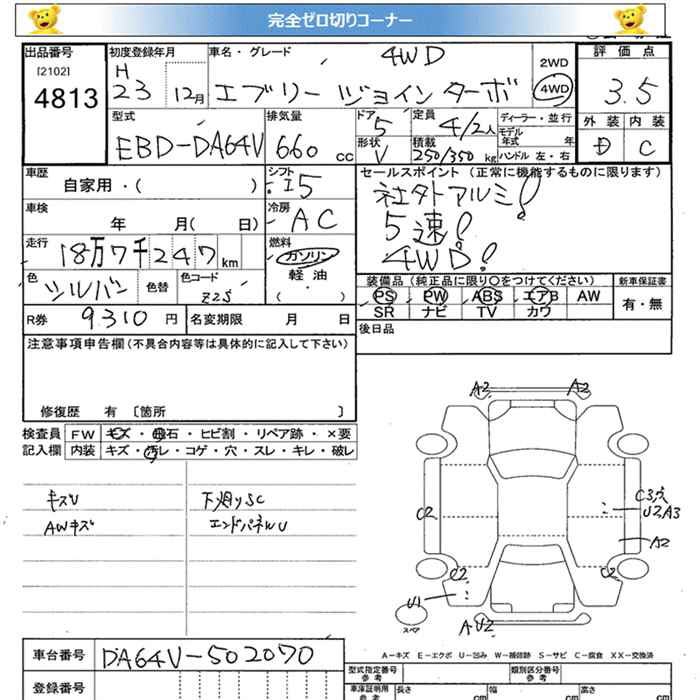 完全ゼロ切りコーナー
出品番号
[2102]
4813
初度登録年月
H
23 12月
車名・グレード
4WD
エブリー ジョインターボ
2WD
4WD
評価点
3.5
外装 内装
D C
型式
EBD-DA64V
排気量
660 cc
ドア
5
形状
V
定員
4/2人
積載
250/350 kg
ディーラー・並行
モデル
年式 年
ハンドル 左・右
車歴
自家用・( )
シフト
I5
セールスポイント(正常に機能するものに限ります)
社外アルミ!
5速!
4WD!
車検
年 月( 日)
冷房
AC
走行
18万7千247 km
燃料
ガソリン
軽油
( )
色
シルバー
色替
色コード
Z2S
装備品(純正品に限り○をつけてください)
PS PW ABS エアB AW
SR ナビ TV カワ
新車保証書
有・無
R券 9310 円
名変期限 月 日
後日品
注意事項申告欄(不具合内容等は具体的に記入して下さい)
修復歴 有 〔箇所 〕
検査員
記入欄
FW キズ・飛石・ヒビ割・リペア跡・×要
内装 キズ・汚レ・コゲ・穴・スレ・キレ・破レ
キズU
AWキズ
下廻りSC
エンドパネWU
A2 A2
C2
C3穴
U2A3
A2
C2 C2
U1
スペア
A U2
A−キズ E−エクボ U−凹み W−補修跡 S−サビ C−腐食 XX−交換済
車台番号 DA64V-502070
登録番号
型式指定番号
参考
類別区分番号
参考
車庫証明用
参考
長さ cm
幅 cm
高さ cm